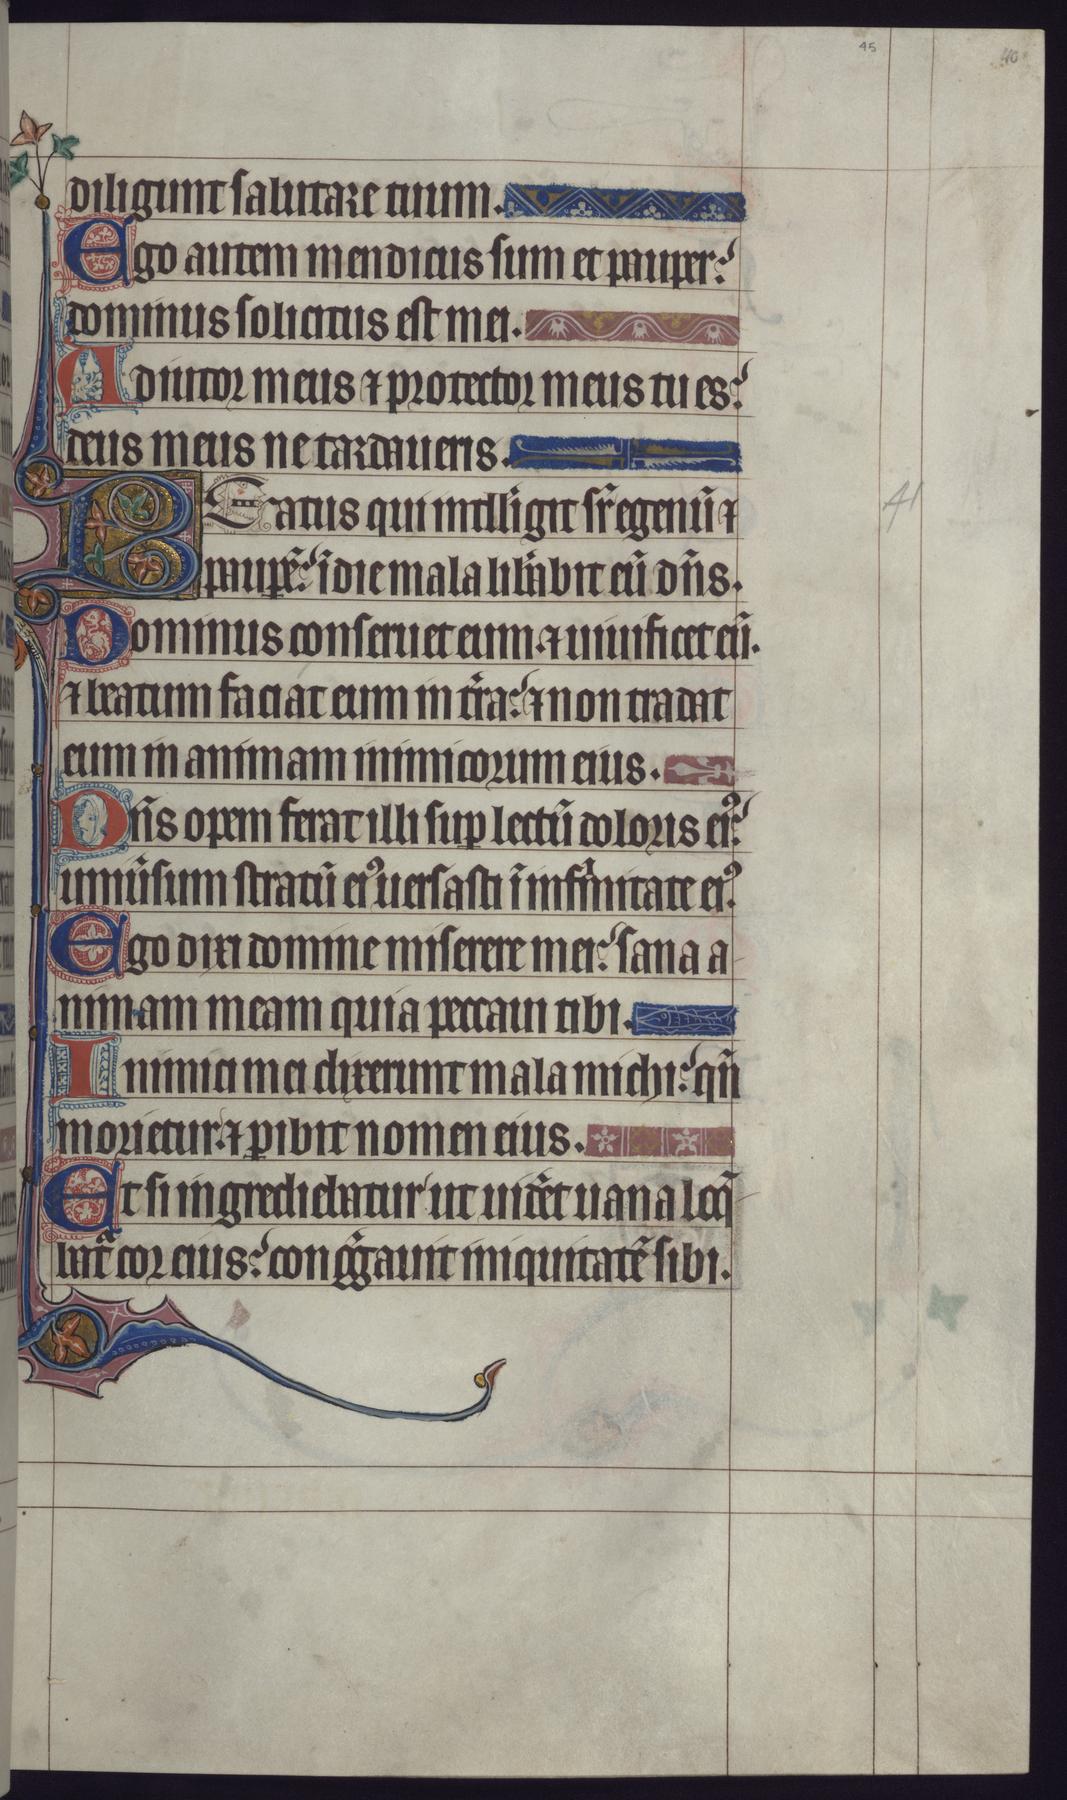 45
40
diligunt salutare tuum.
Ego autem mendicus sum et pauper:
dominus solicitus est mei.
Adiutor meus ⁊ protector meus tu es:
deus meus ne tardaueris.
BEatus qui intelligit sr̄ egenū ⁊
paupē: ī die mala lib̄abit eū dn̄s.
Dominus conseruet eum ⁊ uiuificet eū.
⁊ beatum faciat eum in tr̄a: ⁊ non tradat
eum in animam inimicorum eius.
Dn̄s opem ferat illi sup lectū doloris eiꝰ:
uniūsum stratū eiꝰ uersasti ī infirmitate eiꝰ.
Ego dixi domine miserere mei: sana a
nimam meam quia peccaui tibi.
41
Inimici mei dixerunt mala michi: qn̄
morietur ⁊ ꝑibit nomen eius.
Et si ingrediebatur ut uidēt uana locq̄
bat᷑ cor eius: congᷓgauit iniquitatē sibi.